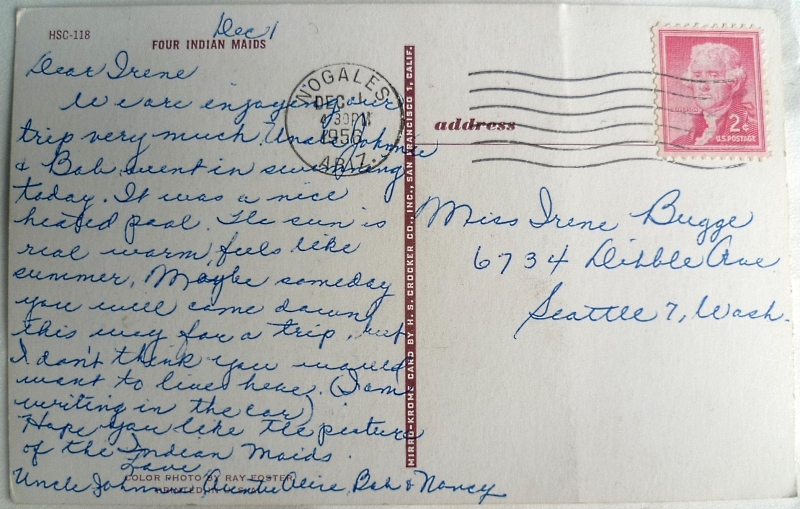 HSC-118
Dec 1
FOUR INDIAN MAIDS
Dear Irene
We are enjoying our
trip very much. Uncle Johnnie
& Bob went in swimming
today. It was a nice
heated pool. The sun is
real warm, feels like
summer. Maybe someday
you will come down
this way for a trip, but
I don't think you would
want to live here. (I am
writing in the car)
Hope you like the picture
of the Indian Maids.
Love
Uncle Johnnie, Auntie Bob & Nancy
COLOR PHOTO BY RAY FOSTER
PRINTED IN U.S.A.
MIRRO-KROME CARD BY H. S. CROCKER CO., INC., SAN FRANCISCO 1, CALIF.
NOGALES
DEC 1
4:30 PM
1956
ARIZ.
2¢
U.S. POSTAGE
address
Miss Irene Bugge
6734 Dibble Ave
Seattle 7, Wash.